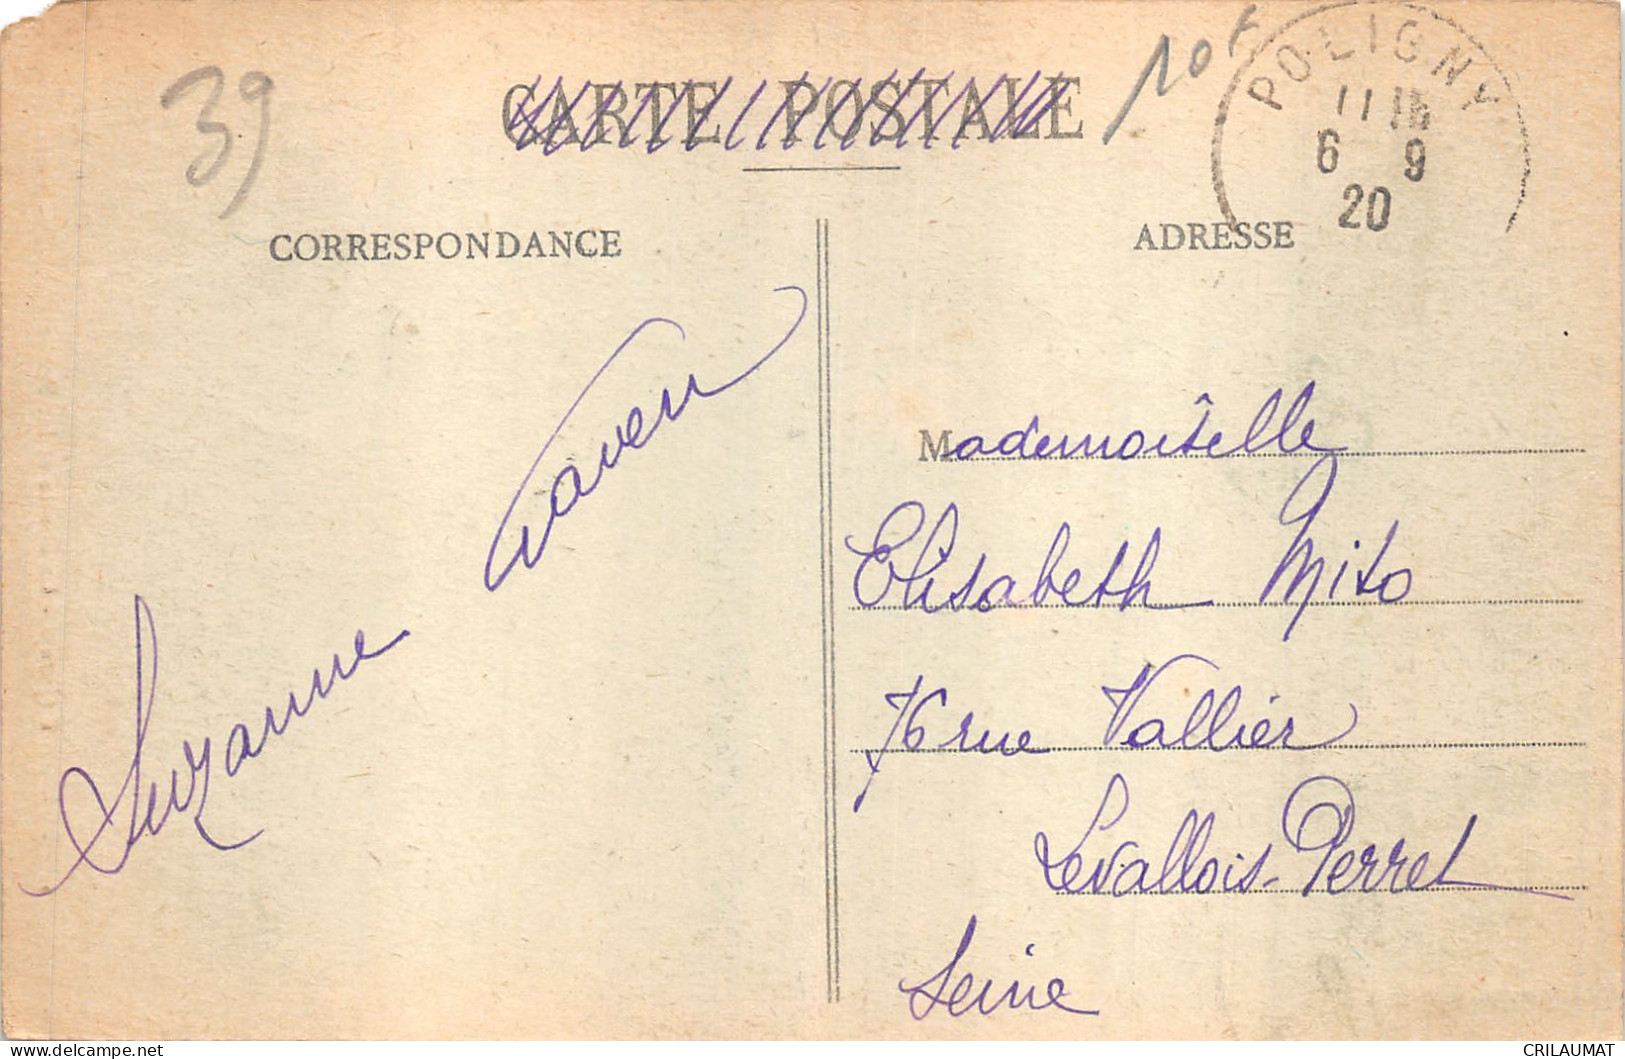 39
CARTE POSTALE
10F
POLIGNY
11
6 9
20
CORRESPONDANCE
ADRESSE
Suzanne
Mademoiselle
Elisabeth Mito
76 rue Vallier
Levallois-Perret
Seine
CRILAUMAT